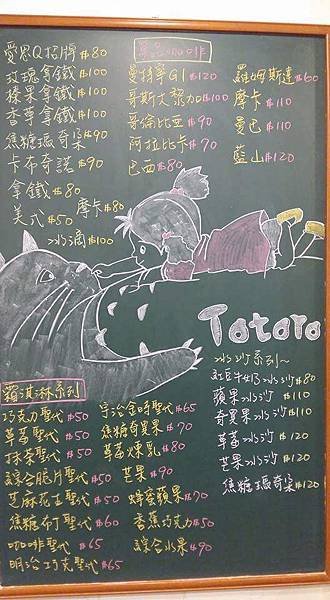 愛恩Q招牌 $80
玫瑰拿鐵 $100
榛果拿鐵 $100
香草拿鐵 $100
焦糖瑪奇朵 $90
卡布奇諾 $90
拿鐵 $80
摩卡 $80
美式 $50
冰滴 $100
單品咖啡
曼特寧G1 $120
哥斯大黎加 $100
哥倫比亞 $90
阿拉比卡 $70
巴西 $80
羅姆斯達 $60
摩卡 $110
曼巴 $110
藍山 $120
Totoro
霜淇淋系列
巧克力聖代 $50
草莓聖代 $50
抹茶聖代 $50
綜合脆片聖代 $50
芝麻花生聖代 $50
焦糖布丁聖代 $60
咖啡聖代 $65
明治巧克聖代 $65
宇治金時聖代 $65
焦糖奇異果 $70
草莓煉乳 $80
芒果 $90
蜂蜜蘋果 $70
香蕉巧克力 $50
綜合水果 $90
冰沙系列~
紅豆牛奶冰沙 $80
蘋果冰沙 $110
奇異果冰沙 $110
草莓冰沙 $120
芒果冰沙 $120
焦糖瑪奇朵 $120